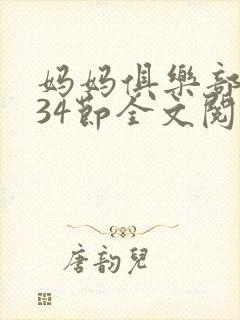 妈妈俱樂部
34節全文閱
唐韵兒